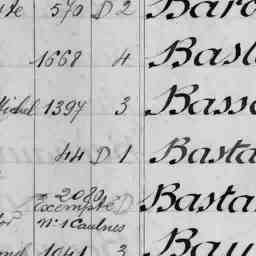 570 D 2 Baro
1668 4 Basl
Michel 1397 3 Basso
44 D 1 Basta
2080 D Bastar
Exempté
N° 1 Caulnes
1041 3 Bau